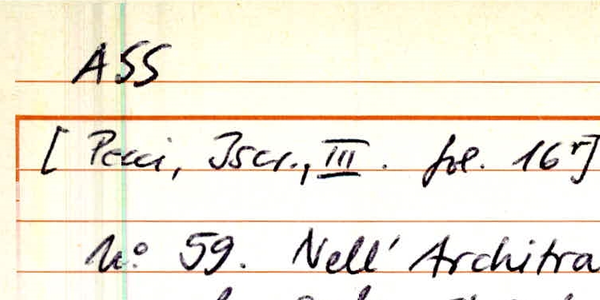 ASS
[Pecci, Iscr., III. fol. 16r]
No 59. Nell' Architra